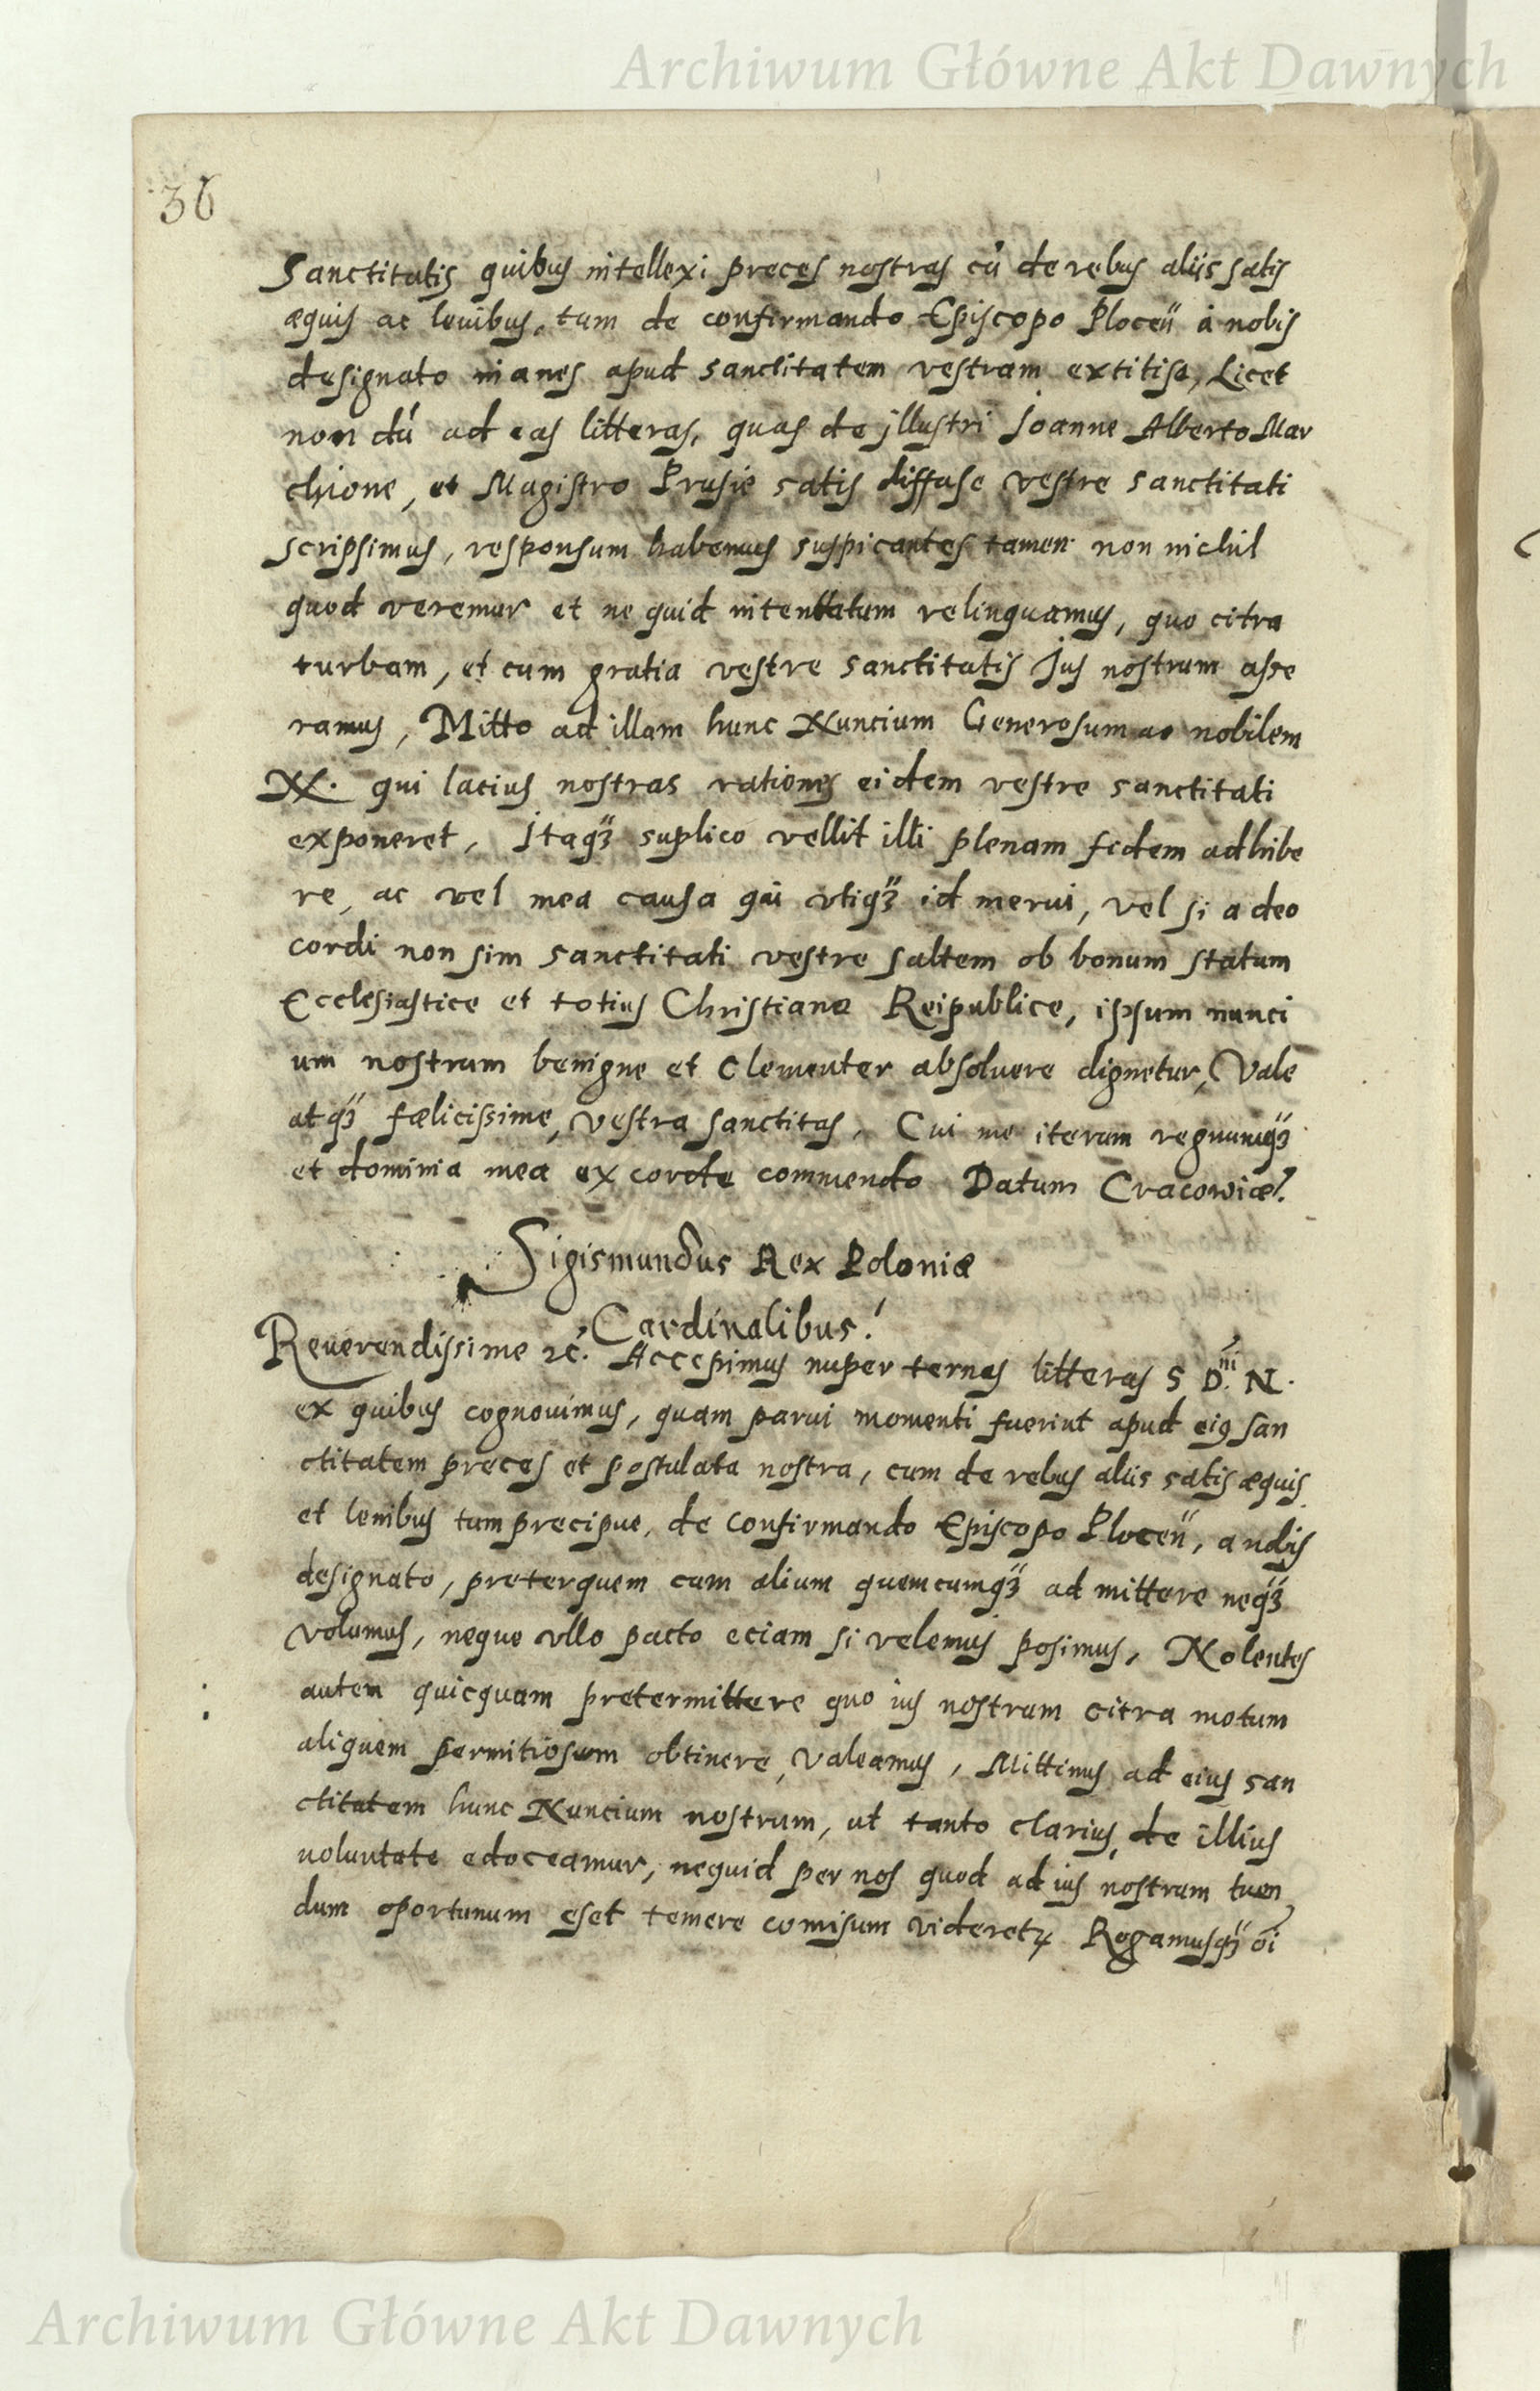 Archiwum Główne Akt Dawnych
36
Sanctitatis quibus intellexi preces nostras cũ de rebus aliis satis
æquis ac leuibus, tum de confirmando Episcopo Plocen̈ à nobis
designato inanes apud sanctitatem vestram extitise, Licet
non dũ ad eas litteras, quas de jllustri Joanne Alberto Mar
chione, et Magistro Prusie satis diffuse vestre sanctitati
scripsimus, responsum habemus suspicantes tamen non nichil
quod veremur et ne quid intenttatum relinquamus, quo citra
turbam, et cum gratia vestre sanctitatis Jus nostrum asse
ramus, Mitto ad illam hunc Nuncium Generosum ac nobilem
N. qui lacius nostras rationes eidem vestre sanctitati
exponeret, Itaqꝫ suplico vellit illi plenam fidem adhibe
re, ac vel mea causa qui vtiqꝫ id merui, vel si adeo
cordi non sim sanctitati vestre saltem ob bonum statum
Ecclesiastice et totius Christianæ Reipublice, ipsum nunci
um nostrum benigne et clementer absoluere dignetur, Vale
atqꝫ fælicissime, vestra sanctitas, Cui me iterum regnumqꝫ
et dominia mea ex corde commendo Datum Cracowiæ.
Sigismundus Rex Poloniæ
Cardinalibus.
Reuerendissime ꝛc. Accepimus nuper ternas litteras S D.ni N.
ex quibus cognouimus, quam parui momenti fuerint apud eiꝰ san
ctitatem preces et postulata nostra, cum de rebus aliis satis æquis
et lenibus tum precipue, de confirmando Episcopo Plocen̈, a nobis
designato, preterquem cum alium quemcumqꝫ admittere neqꝫ
volumus, neque vllo pacto eciam si velemus posimus, Nolentes
autem quicquam pretermittere quo ius nostrum citra motum
aliquem permitiosum obtinere, valeamus, Mittimus ad eius san
ctitatem hunc Nuncium nostrum, ut tanto clarius, de illius
uoluntate edoceamur, nequid per nos quod ad ius nostrum tuen
dum oportunum eset temere comisum videretꝛ Rogamusqꝫ oi
Archiwum Główne Akt Dawnych